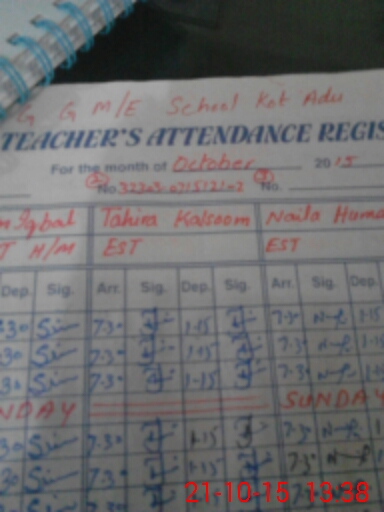 G G M/E School Kot Adu
TEACHER'S ATTENDANCE REGIS
For the month of October 2015
② No 32303-0715121-2 ③ No.
m Iqbal Tahira Kalsoom Naila Huma
T H/M EST EST
Dep. Sig. Arr. Sig. Dep. Sig. Arr. Sig. Dep.
:30 7-30 1-15 7-3 1-15
:30 7-30 1-15 7-3 1-15
:30 7-30 1-15 7-3 1-15
NDAY SUNDAY
:30 7-30 1-15 7-3
:30 7-30 1-15 7-3
21-10-15 13:38